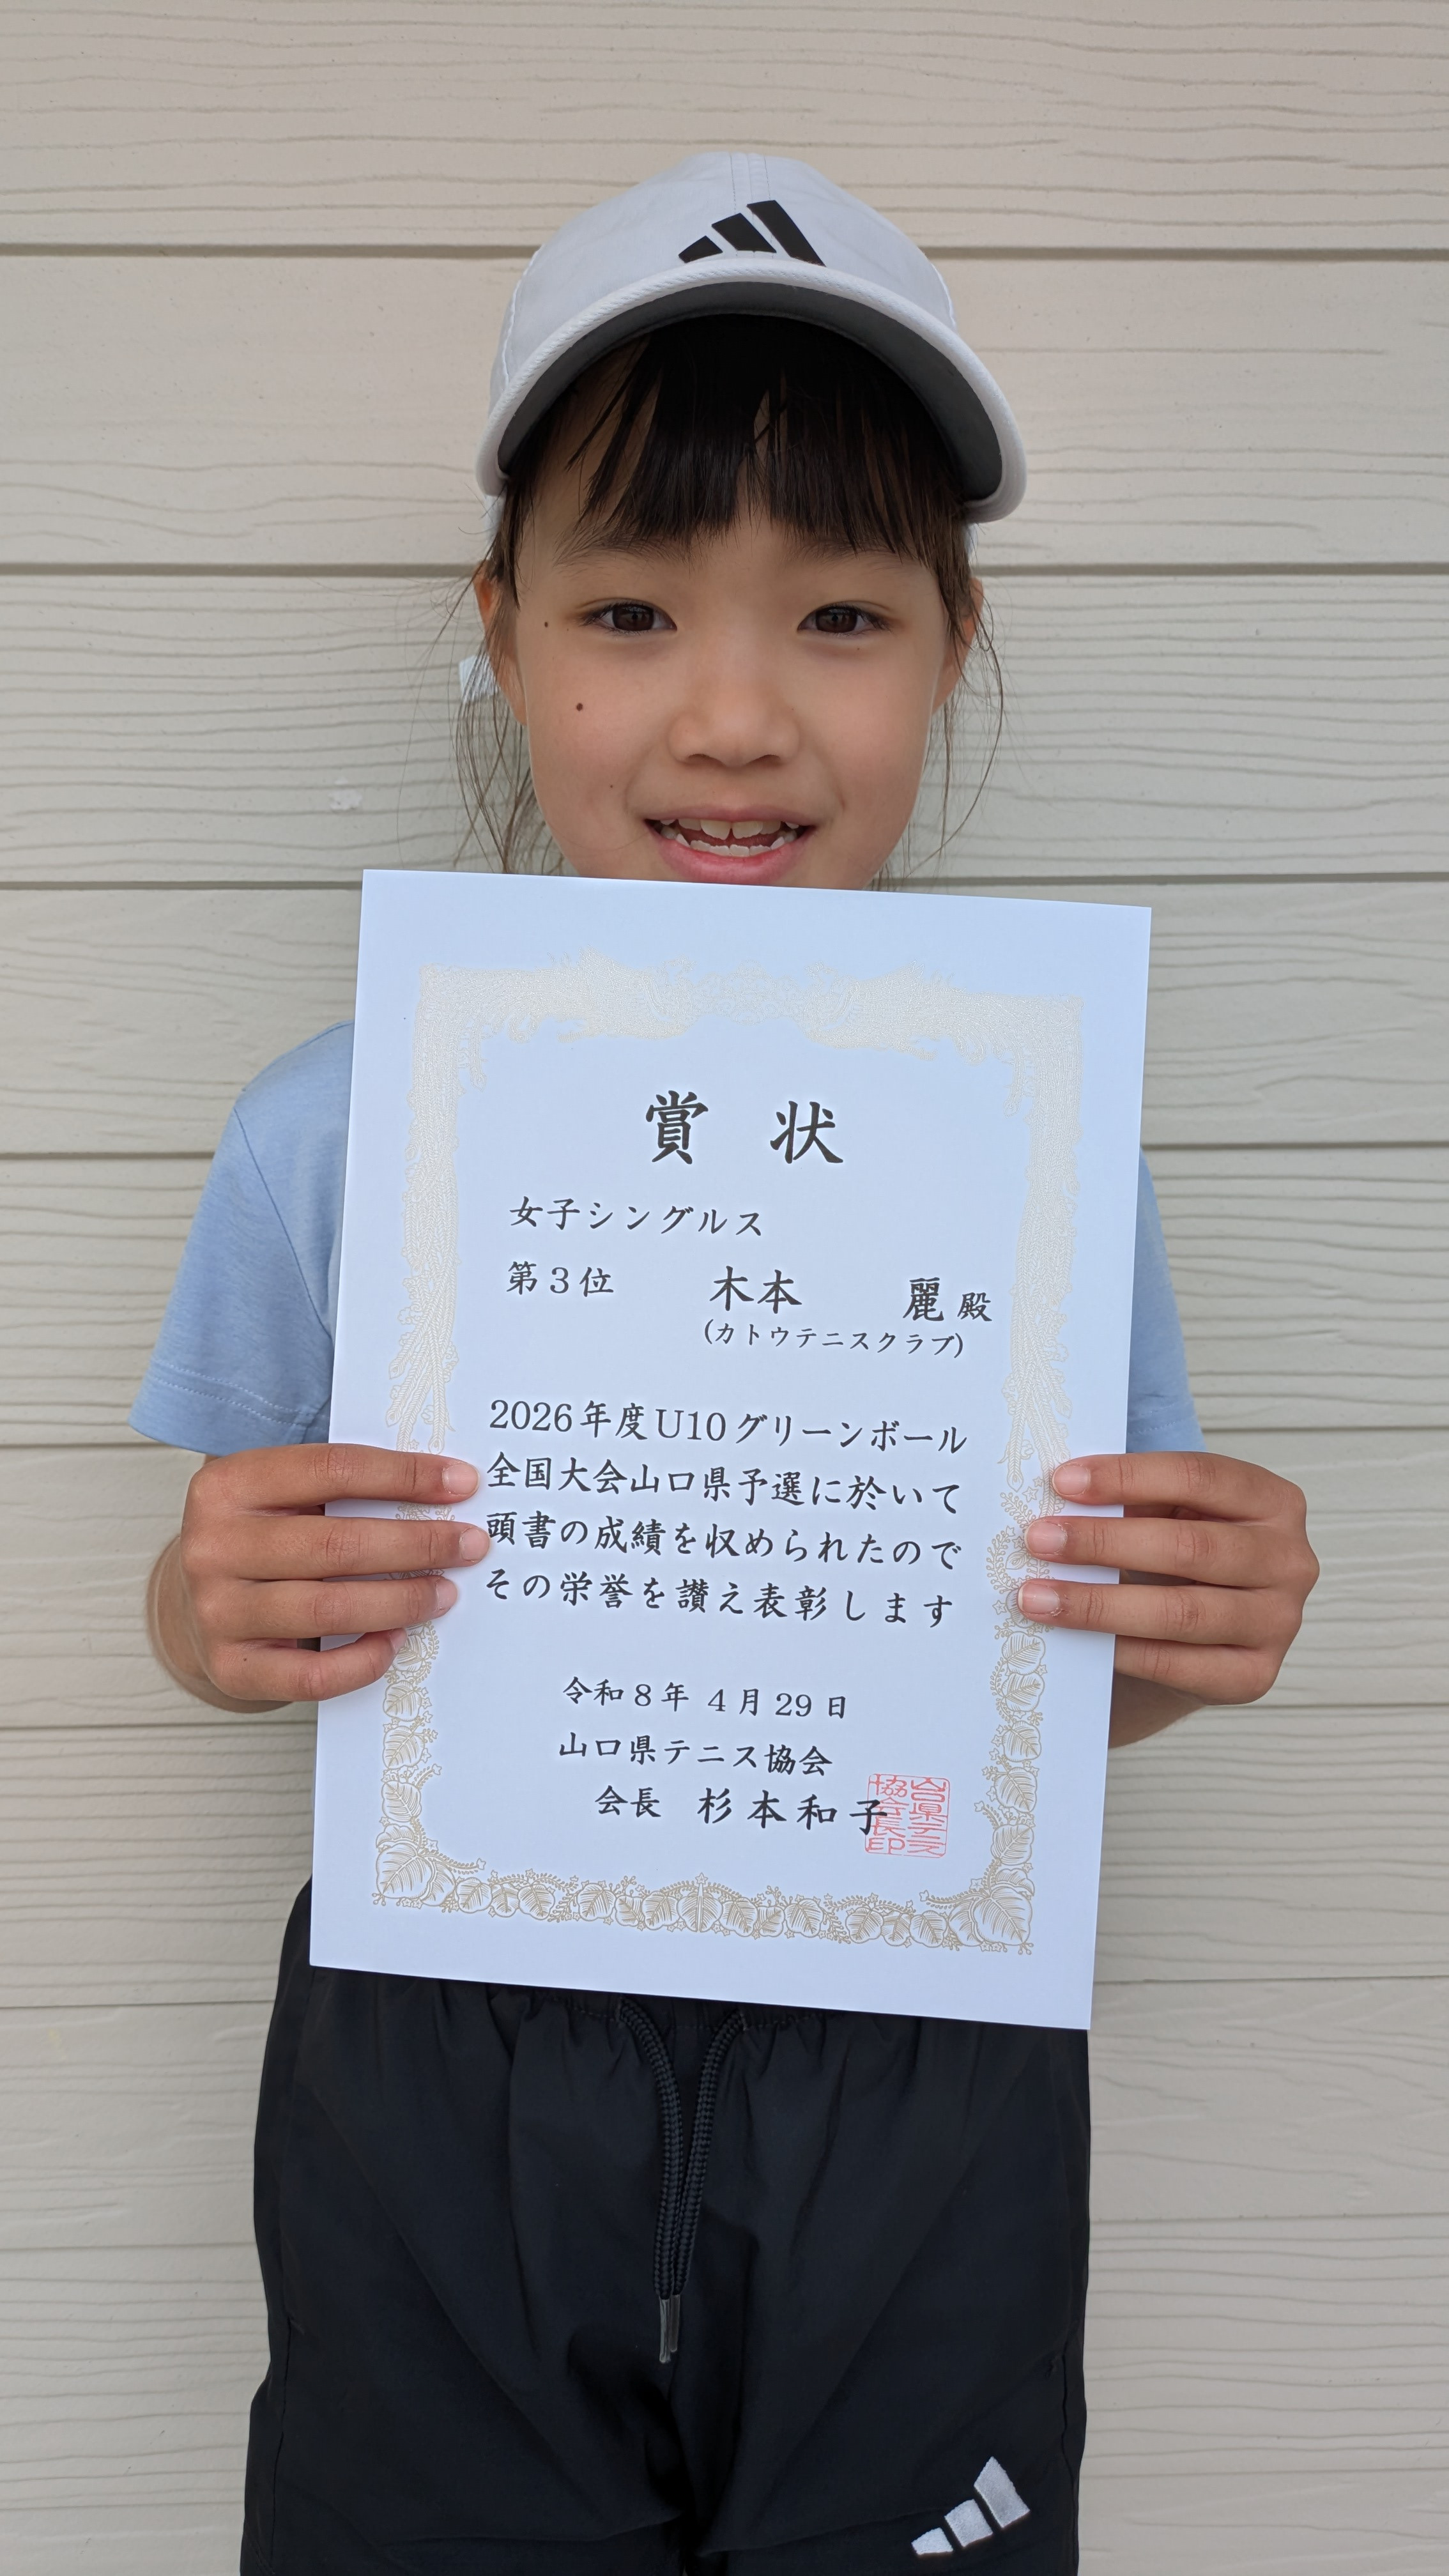 賞状
女子シングルス
第3位 木本 麗 殿
(カトウテニスクラブ)
2026年度U10グリーンボール
全国大会山口県予選に於いて
頭書の成績を収められたので
その栄誉を讃え表彰します
令和8年 4月29日
山口県テニス協会
会長 杉本和子
山口県テニス
協会長印